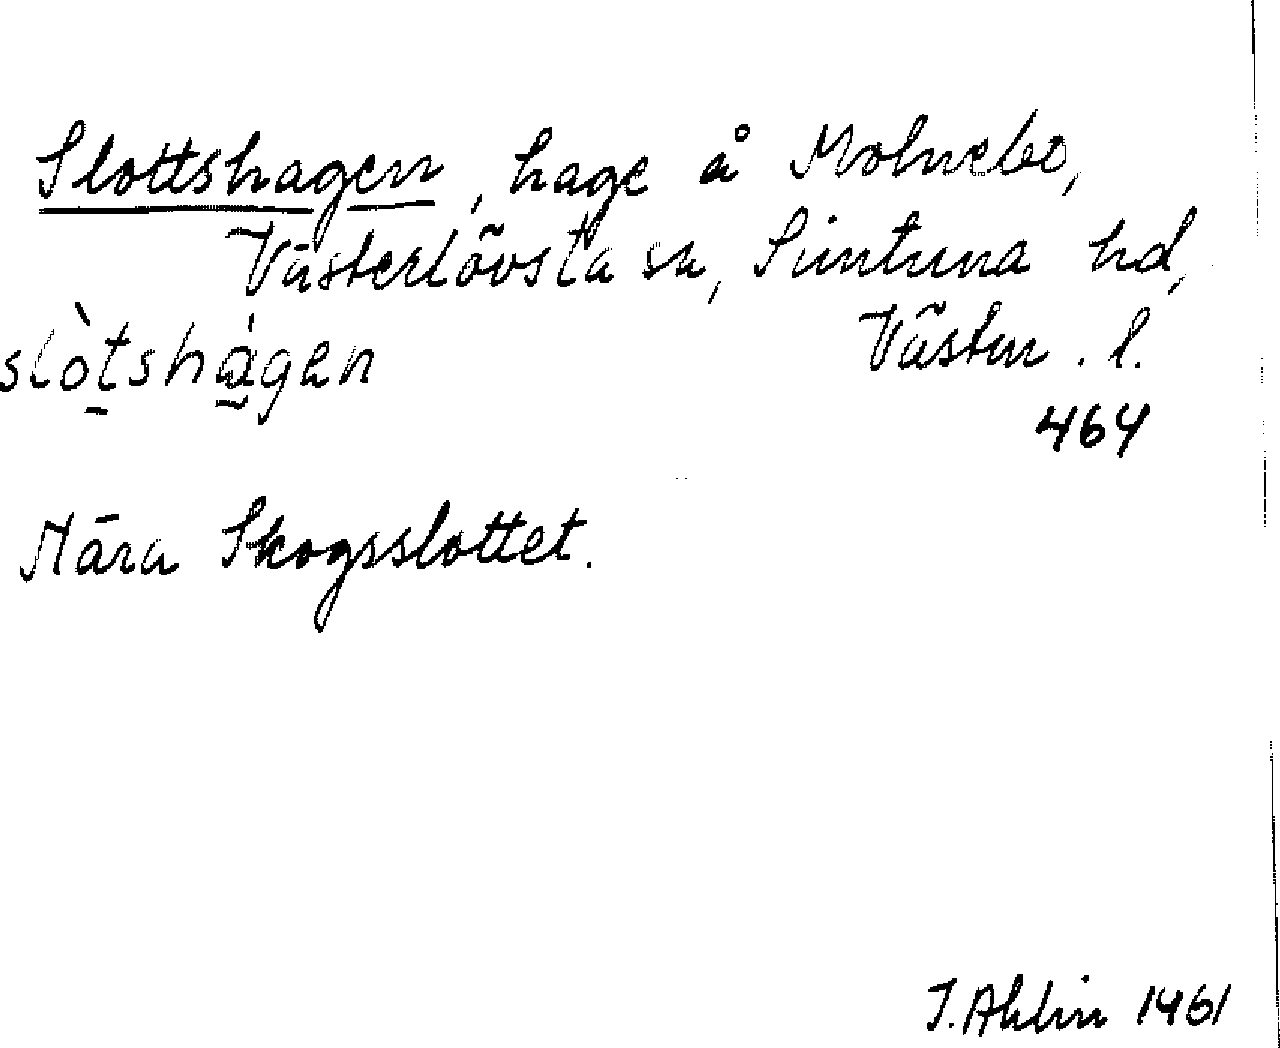 Slottshagen, hage å Molnebo,
Västerlövsta sn, Simtuna hd,
slòtshágen Västm. l.
464
Nära Skogsslottet.
I. Ahlin 1961